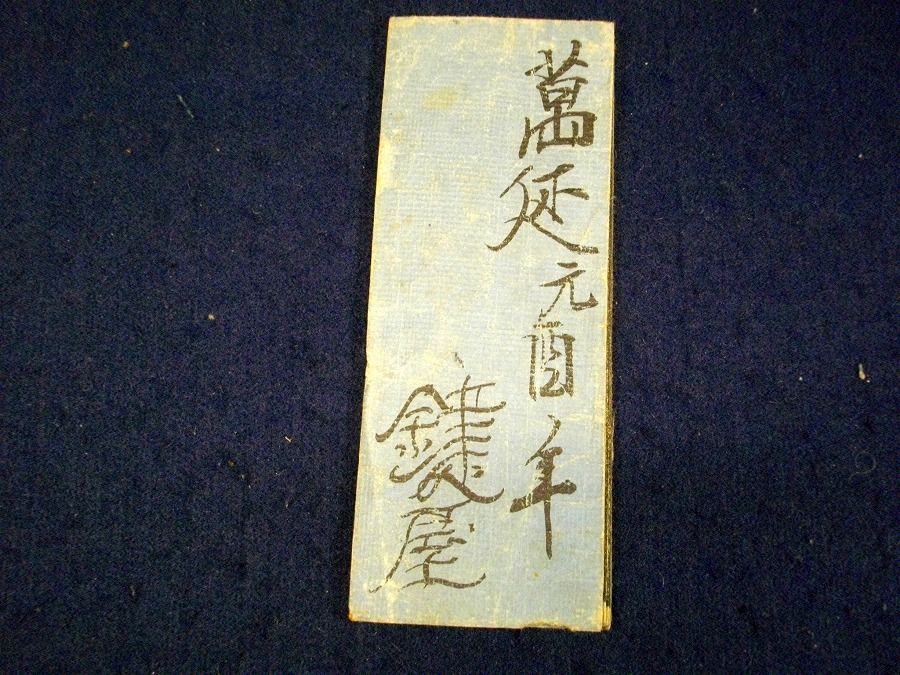 萬延元酉ノ年
鍵屋